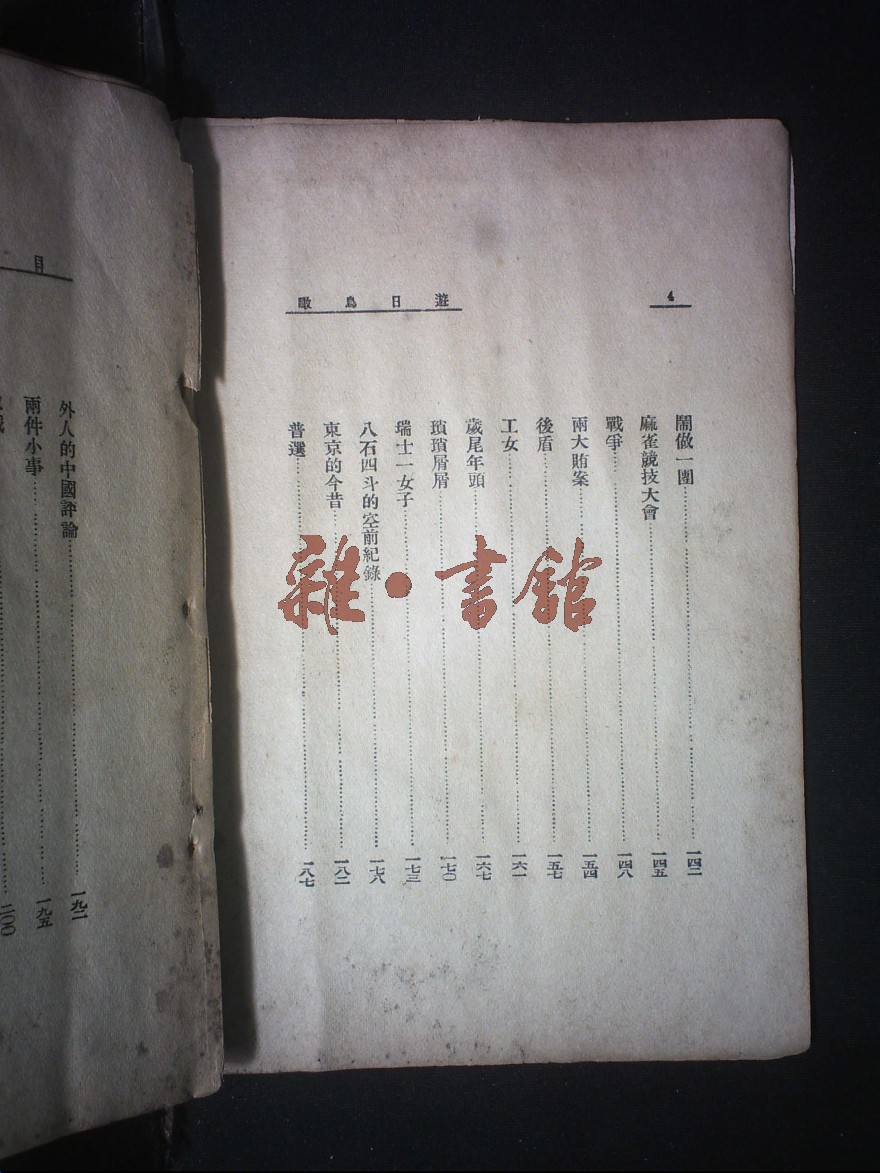 4
遊日鳥瞰
鬧做一團……一四二
麻雀競技大會……一四五
戰爭……一四八
兩大賄案……一五四
後盾……一五七
工女……一六一
歲尾年頭……一六七
瑣瑣屑屑……一七〇
瑞士一女子……一七三
八石四斗的空前紀錄……一七八
東京的今昔……一八二
普選……一八七
目
外人的中國評論……一九二
兩件小事……一九五
二〇〇
雜·書館